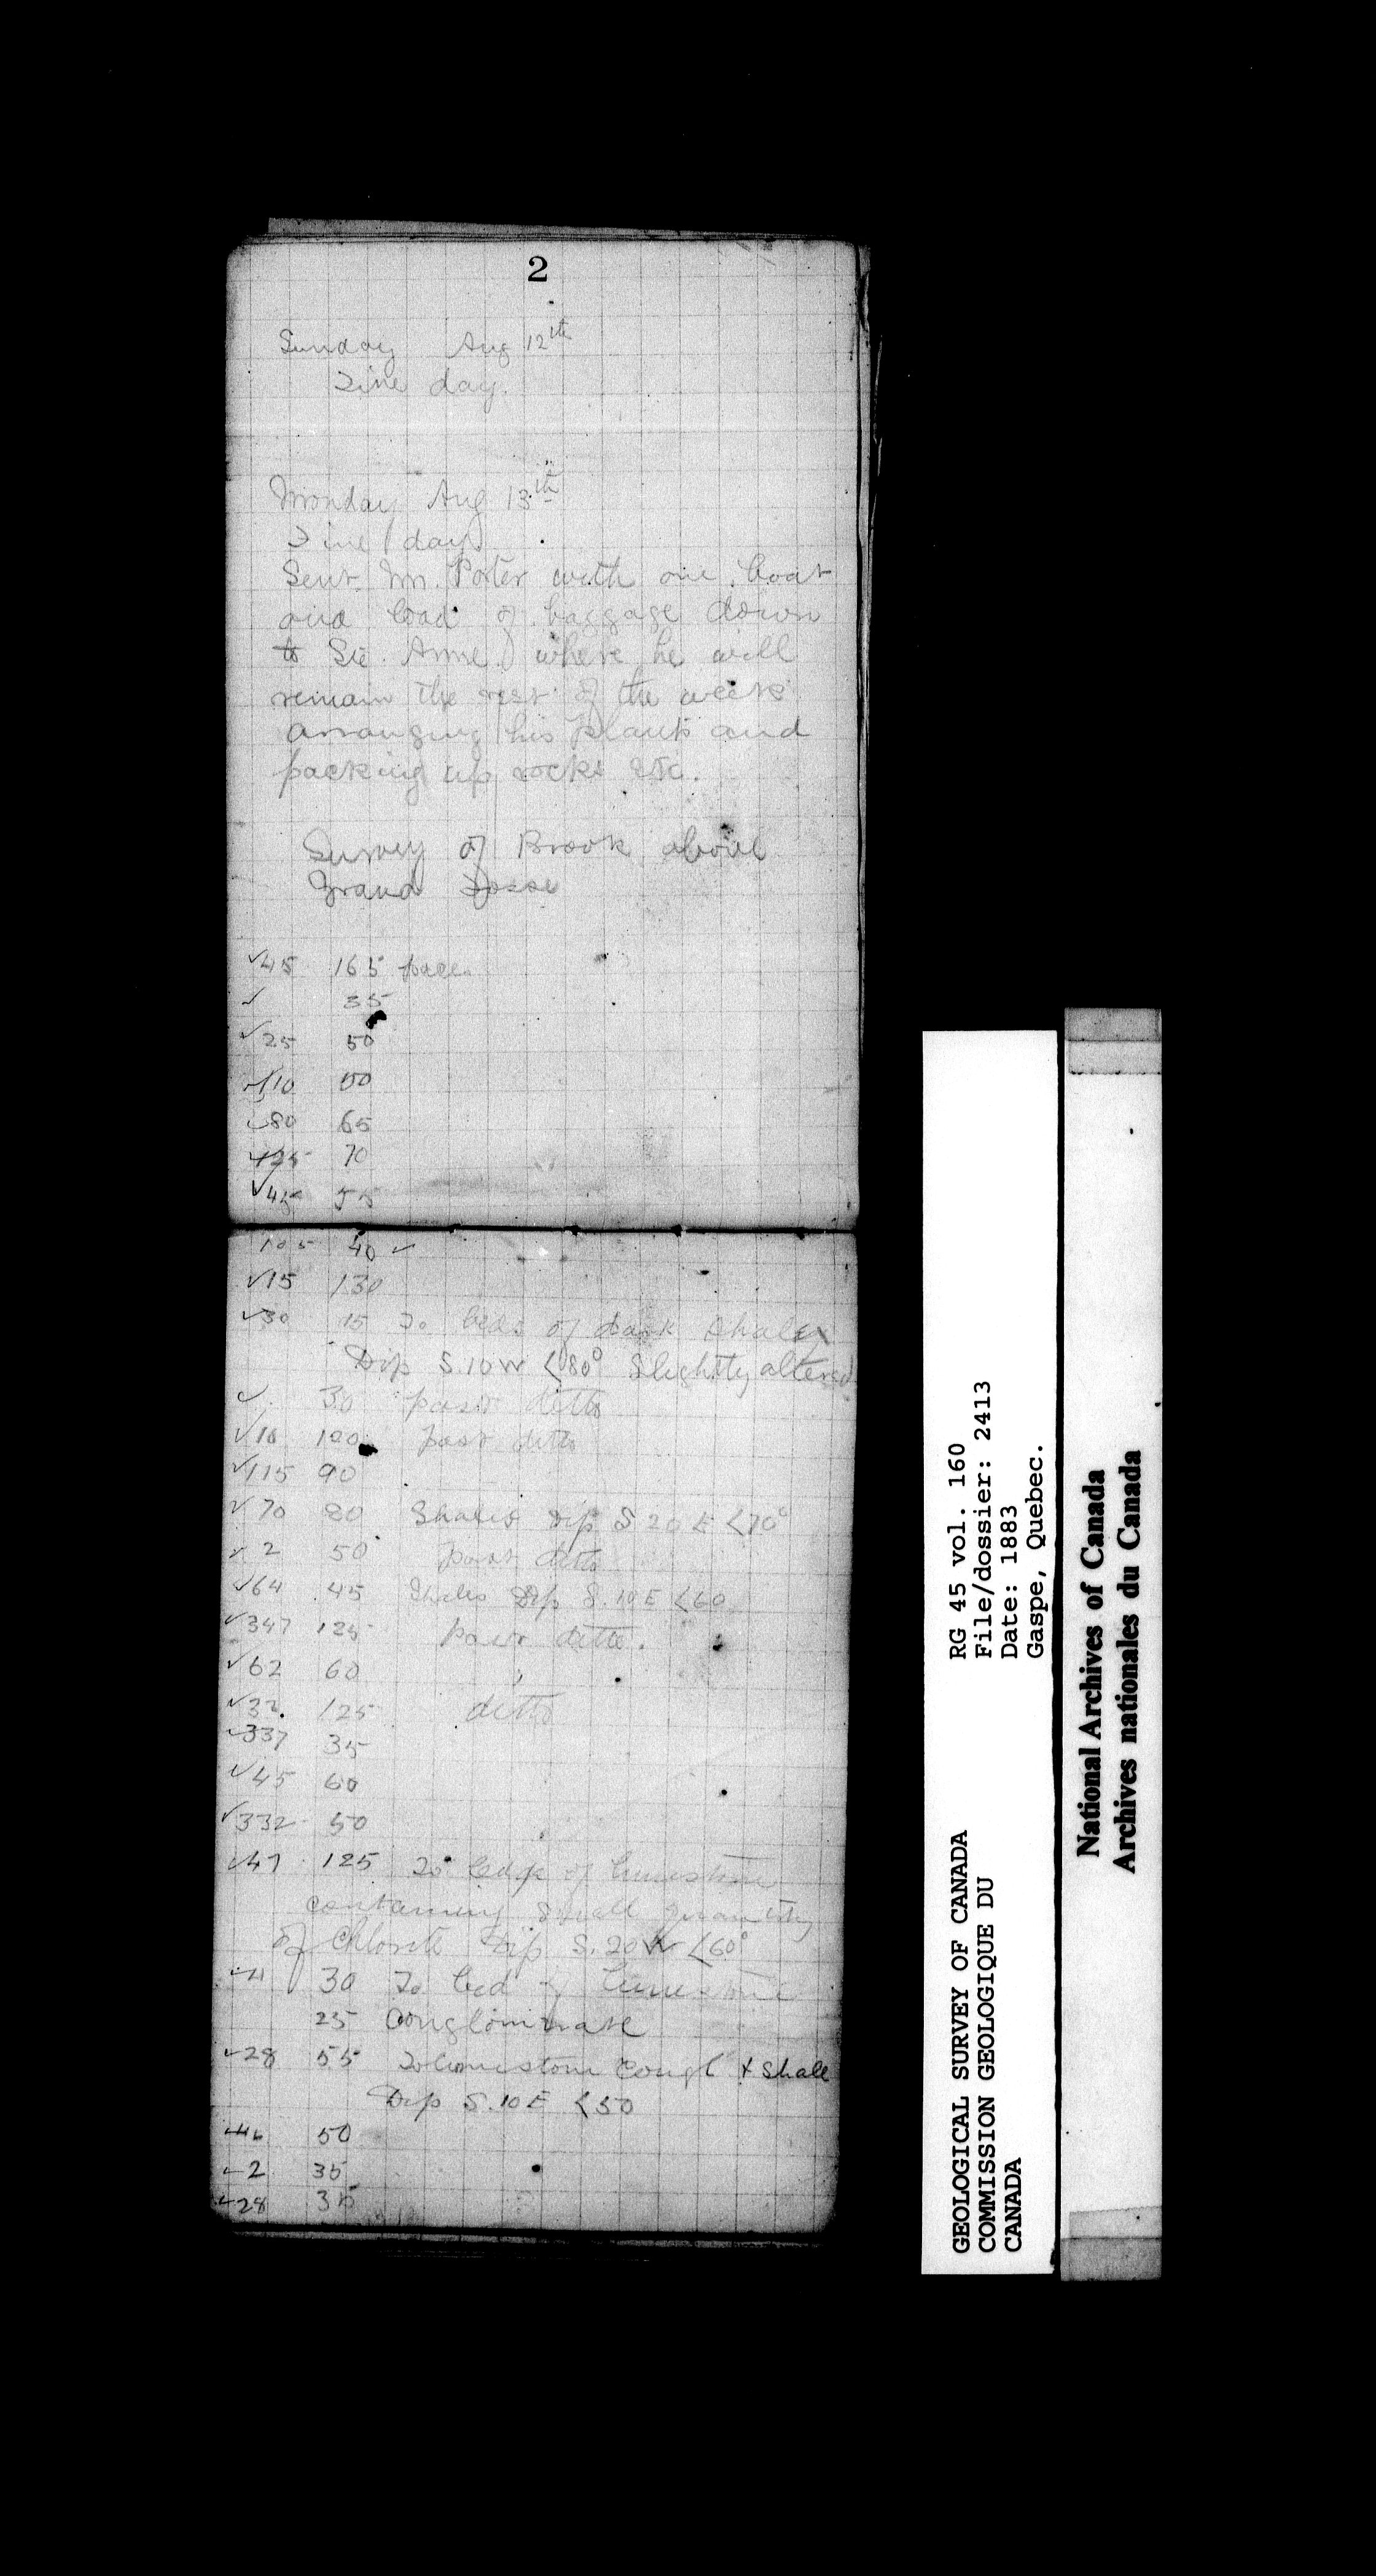 2
Sunday Aug 12th
Fine day.
Monday Aug 13th
Fine day
Sent Mr. Porter with one boat
and load of baggage down
to Ste. Anne where he will
remain the rest of the week
arranging his plants and
packing up rocks etc.
Survey of Brook above
Grand Fosse
✓45 165 paces
✓ 35
✓25 50
✓110 50
✓80 65
✓125 70
✓45 55
105 40 ✓
✓15 130
✓30 15 To beds of dark shales
Dip S.10W <80° Slightly altered
✓ 30 past ditto
✓10 100 past ditto
✓115 90
✓70 80 Shales Dip S 20 E <70°
✓2 50 past ditto
✓64 45 Shales Dip S.10E <60
✓347 125 past ditto.
✓62 60 "
✓32. 125 ditto
✓337 35
✓45 60
✓332 50
✓47 125 To ledge of limestone
containing small quantity
of Chlorite Dip S.20W <60°
30 To bed of limestone
25 Conglomerate
✓28 55 To limestone Congl & Shale
Dip S.10E <50
50
✓2 35
✓28 35
GEOLOGICAL SURVEY OF CANADA
COMMISSION GEOLOGIQUE DU
CANADA
RG 45 vol. 160
File/dossier: 2413
Date: 1883
Gaspe, Quebec.
National Archives of Canada
Archives nationales du Canada